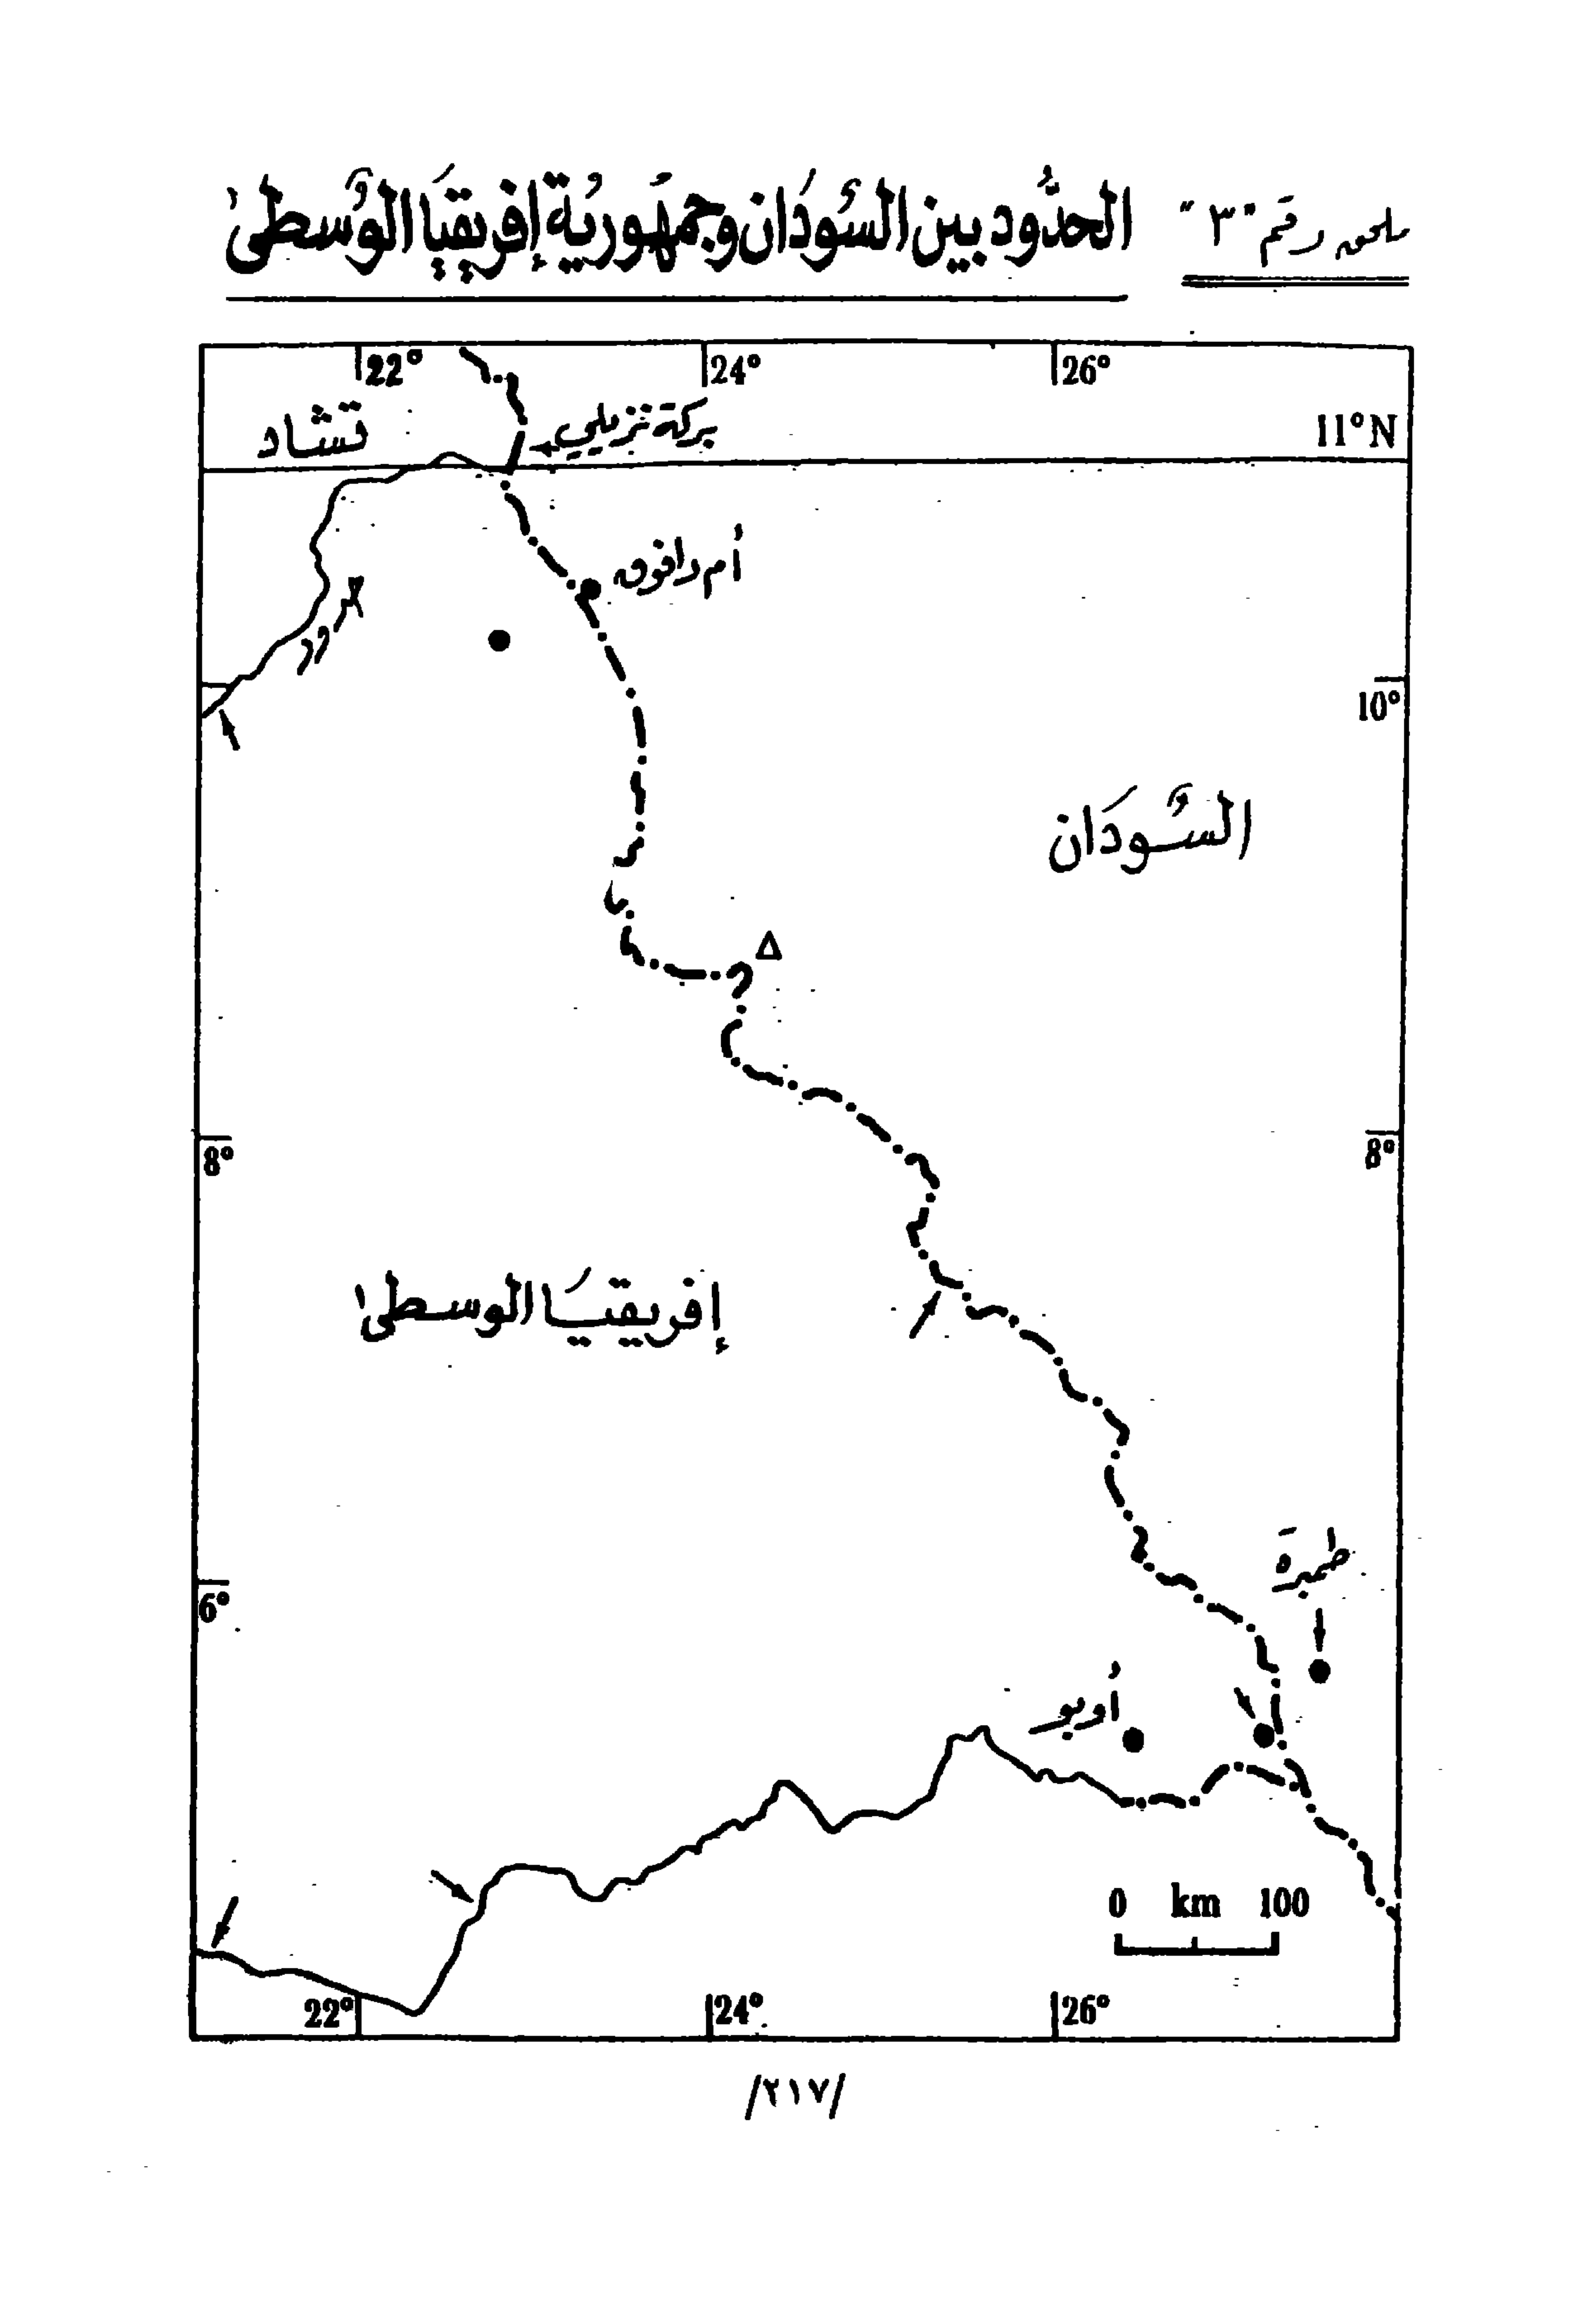 ملحق رقم "٣"
الحدُود بين السُودَان وجمهُورية إفريقيَا الوُسطى
22°
24°
26°
تشاد
بركة تزيلي
11°N
أم دافوق
10°
السُّودَان
8°
8°
إفريقيَا الوسطى
6°
طمبرة
أوبو
0 km 100
22°
24°
26°
/٢١٧/